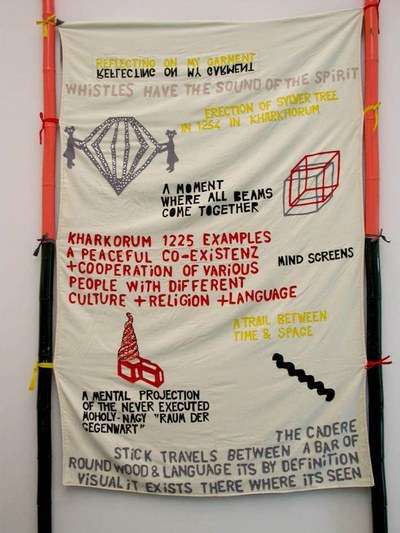 REFLECTING ON MY GARMENT
REFLECTING ON MY GARMENT
WHISTLES HAVE THE SOUND OF THE SPIRIT
ERECTION OF SYLVER TREE
IN 1254 IN KHARKHORUM
A MOMENT
WHERE ALL BEAMS
COME TOGETHER
KHARKORUM 1225 EXAMPLES
A PEACEFUL CO-EXISTENZ
+COOPERATION OF VARIOUS
PEOPLE WITH DIFFERENT
CULTURE +RELIGION +LANGUAGE
MIND SCREENS
A TRAIL BETWEEN
TIME & SPACE
A MENTAL PROJECTION
OF THE NEVER EXECUTED
MOHOLY-NAGY "RAUM DER
GEGENWART"
THE CADERE
STICK TRAVELS BETWEEN A BAR OF
ROUND WOOD & LANGUAGE ITS BY DEFINITION
VISUAL IT EXISTS THERE WHERE ITS SEEN